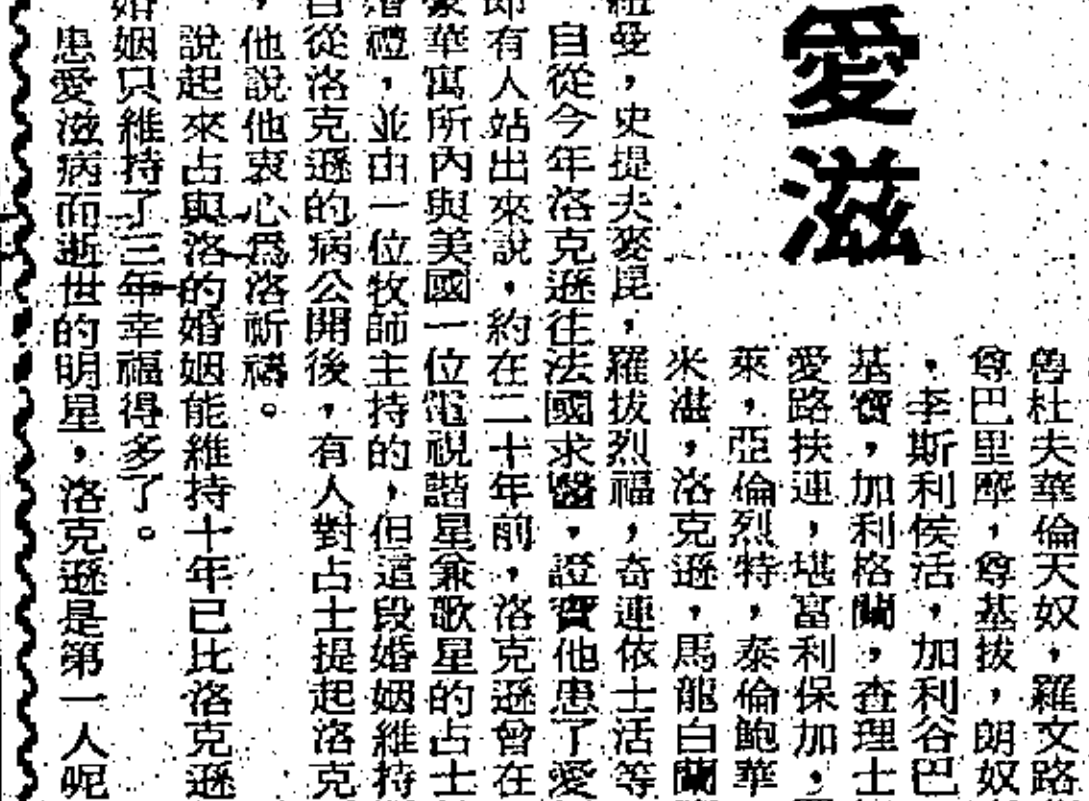 愛滋
魯杜夫華倫天奴，羅文路
尊巴里摩，尊基拔，朗奴
，李斯利侯活，加利谷巴
基寶，加利格蘭，查理士
愛路扶連，堪富利保加，
萊，亞倫烈特，泰倫鮑華
米湛，洛克遜，馬龍白蘭
紐曼，史提夫麥昆，羅拔烈福，奇連依士活等
自從今年洛克遜往法國求醫，證實他患了愛
即有人站出來說，約在二十年前，洛克遜曾在
豪華寓所內與美國一位電視諧星兼歌星的占士
禮，並由一位牧師主持的，但這段婚姻維持
自從洛克遜的病公開後，有人對占士提起洛克
，他說他衷心爲洛祈禱。
說起來占與洛的婚姻能維持十年已比洛克遜
婚姻只維持了三年幸福得多了。
患愛滋病而逝世的明星，洛克遜是第一人呢